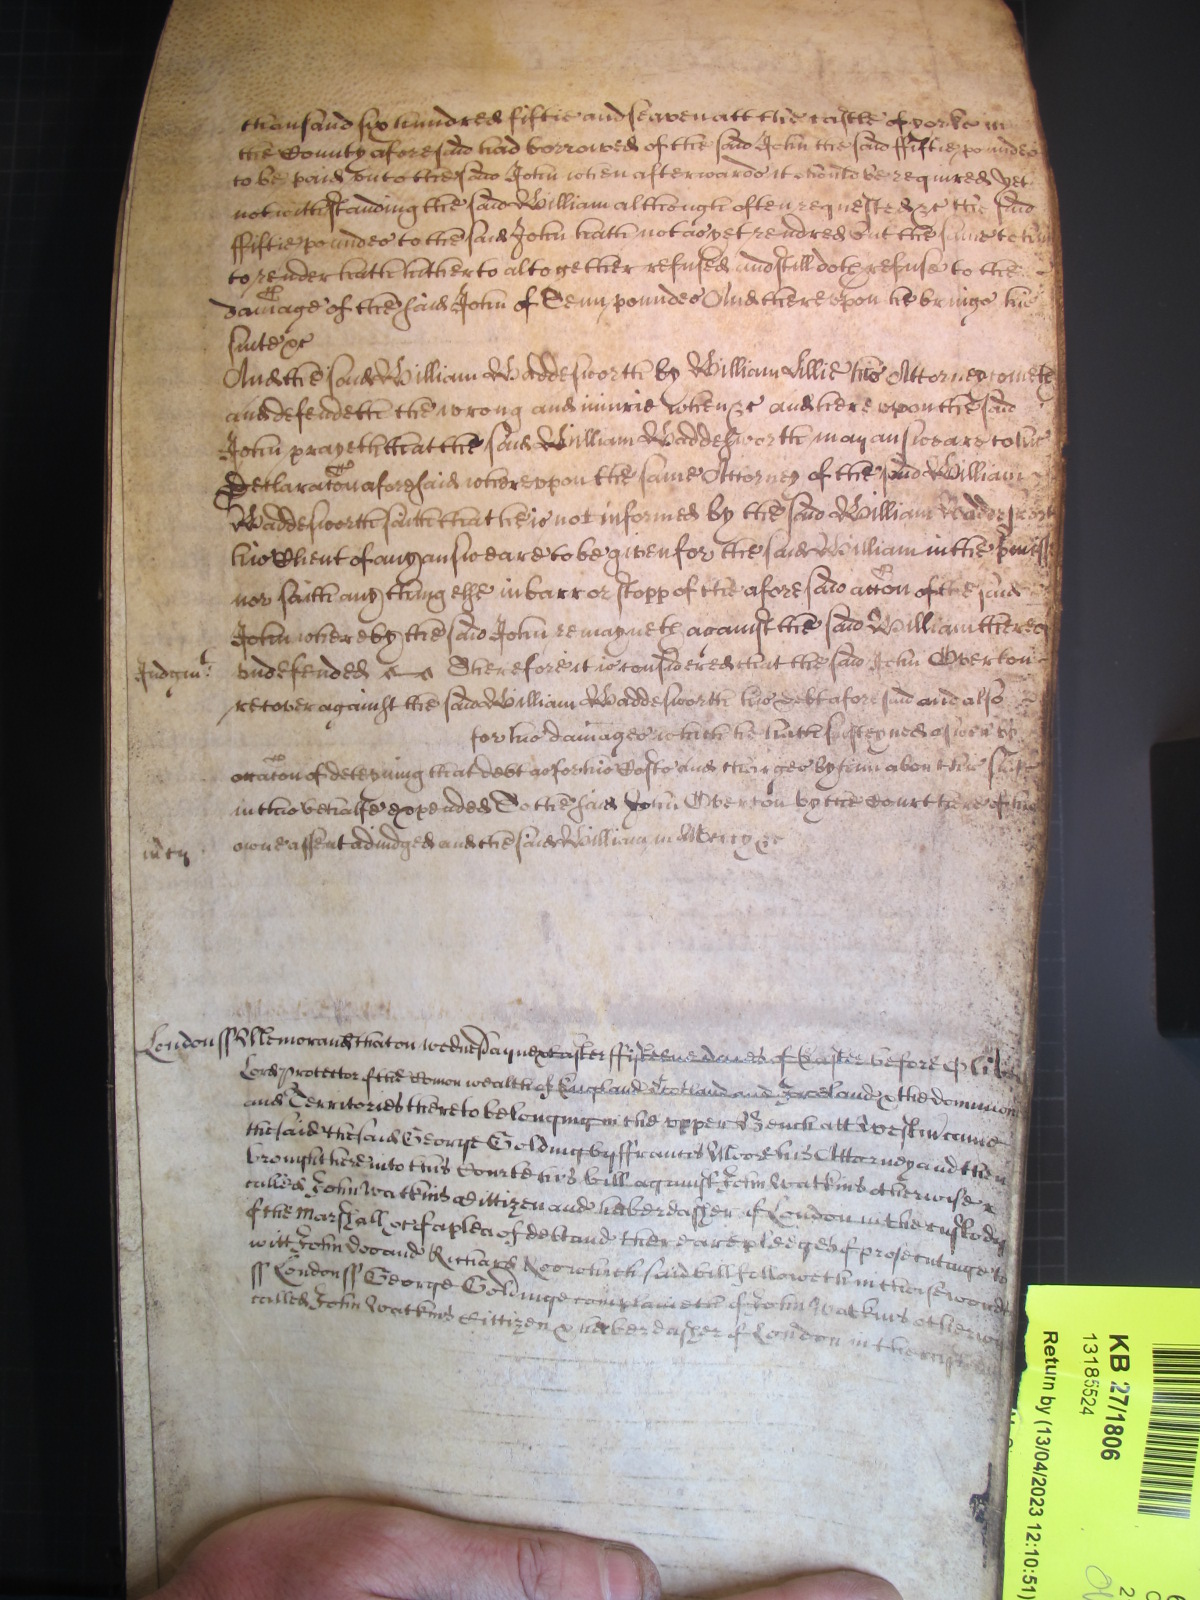 thousand six hundred fiftie and seaven att the castle of yorke in
the County aforesaid had borrowed of the said John the said ffiftie poundes
to be paid unto the said John when afterwards it should be required yet
notwithstanding the said William although often requested &c the said
ffiftie poundes to the said John hath not as yet rendred but the same to him
to render hath hitherto altogether refused and still doth refuse to the
damage of the said John of Tenn poundes And thereupon he brings his
suite &c
And the said William Waddesworth by William Lillie his Attorney cometh
and defendeth the wrong and iniurie when &c and hereupon the said
John prayeth that the said William Waddesworth may answeare to his
Declaracon aforesaid whereupon the same Attorney of the said William
Waddesworth saith that he is not informed by the said William Waddesworth
his Client of any answeare to be given for the said William in the
nor saith any thing else in barr or stopp of the aforesaid accon of the said
John whereby the said John remayneth against the said William thereof
Judgmt
undefended Therefore it is considered that the said John Overton
recover against the said William Waddesworth his debt aforesaid and also
for his damages which he hath susteyned aswell by
occacon of deteyning that debt as for his Costs and charges by him about his suite
in this behalfe expended To the said John Overton by the Court here of his
owne assent adiudged and the said William in Mercy &c
mcy
London ss Memorand that on wednesday next after ffifteene daies of Easter before
Lord protector of the Comon wealth of England Scotland and Ireland & the dominions
and Territories thereto belonging in the upper Bench att Westm came
the said the said George Golding by ffrancis Moore his Attorney and then
brought here into this Courte his bill against John Watkins otherwise
called John Watkins Cittizen and haberdasher of London in the custody
of the Marshall &c of a plea of debt and there are pledges of prosecuting to
witt John Doo and Richard Roo which said bill followeth in these words
ss London ss George Goldinge complaineth of John Watkins otherwise
called John Watkins Cittizen & haberdasher of London in the custody
KB 27/1806
13185524
Return by (13/04/2023 12:10:51)